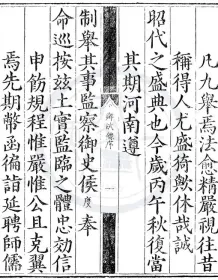 凡九舉焉法愈精嚴視往昔
稱得人尤盛猗歟休哉誠
昭代之盛典也今歲丙午秋復當
其期河南遵
制舉其事監察御史侯度奉
命巡按玆土實監臨之體忠効信
申飭規程惟嚴惟公且克翼
焉先期幣函徧詣延聘師儒